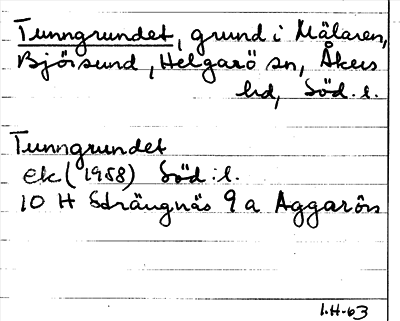 Tunngrundet, grund i Mälaren,
Björsund, Helgarö sn, Åkers
hd, Söd. l.
Tunngrundet
ek (1958) Söd. l.
10 H Strängnäs 9 a Aggarön
1.H-63